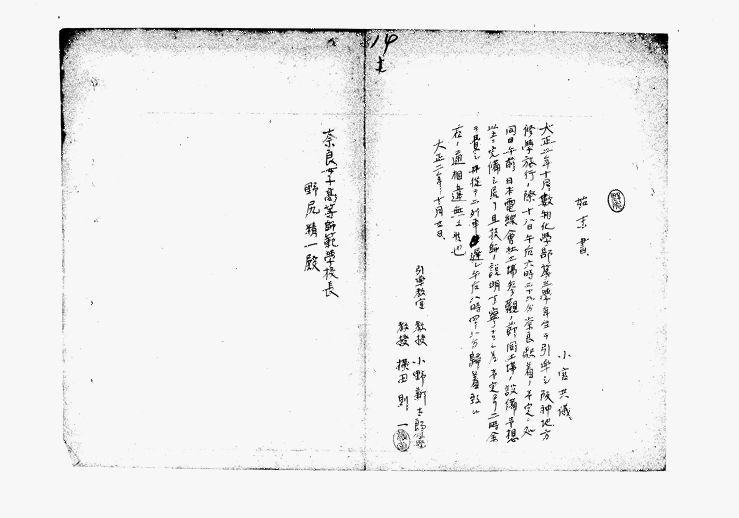 始末書
小官共儀
大正二年十月数物化学部第三学年生ヲ引率シ阪神地方
修学旅行ノ際十八日午后六時三十九分奈良駅着ノ予定ノ処
同日午前日本電線会社工場参観ノ節同工場ノ設備予想
以上ニ完備シ居リ且技師ノ説明丁寧ナリシ為予定ヨリ二時余
ヲ費シ従テ列車遅レ午后八時四十八分帰着致シ
右ノ通相違無之候也
大正二年十月廿日
引率教官
教授 小野新太郎
教授 横田則一
奈良女子高等師範学校長
野尻精一殿